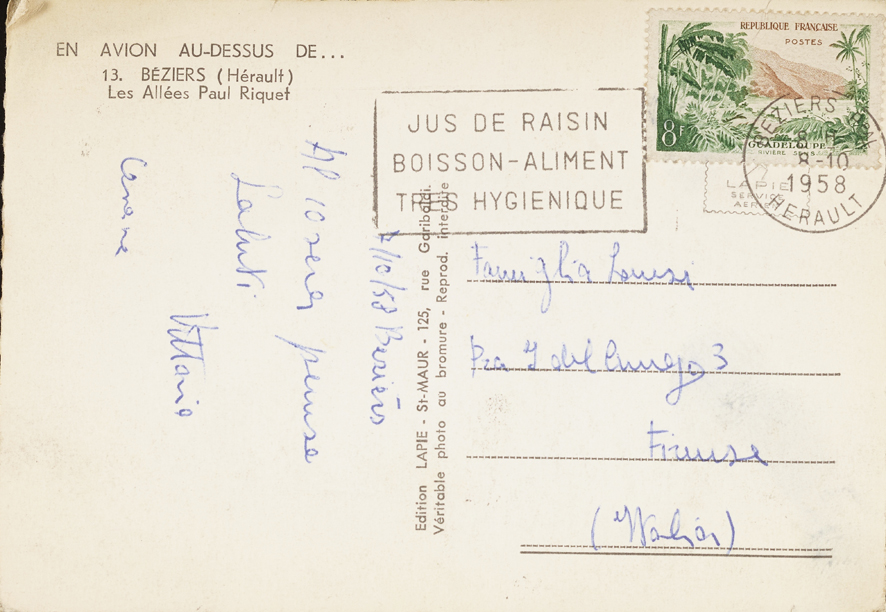 EN AVION AU-DESSUS DE...
13. BÉZIERS (Hérault)
Les Allées Paul Riquet
JUS DE RAISIN
BOISSON-ALIMENT
TRES HYGIENIQUE
REPUBLIQUE FRANÇAISE
POSTES
8F
GUADELOUPE
RIVIÈRE SENS
BEZIERS
8-10
1958
HERAULT
LAPIE
SERVICE
AERIEN
7/10/58 Beziers
Saluti
Vittorio
Edition LAPIE - St-MAUR - 125, rue Garibaldi.
Véritable photo au bromure - Reprod. interdite
Famiglia
3
Firenze
(Italia)